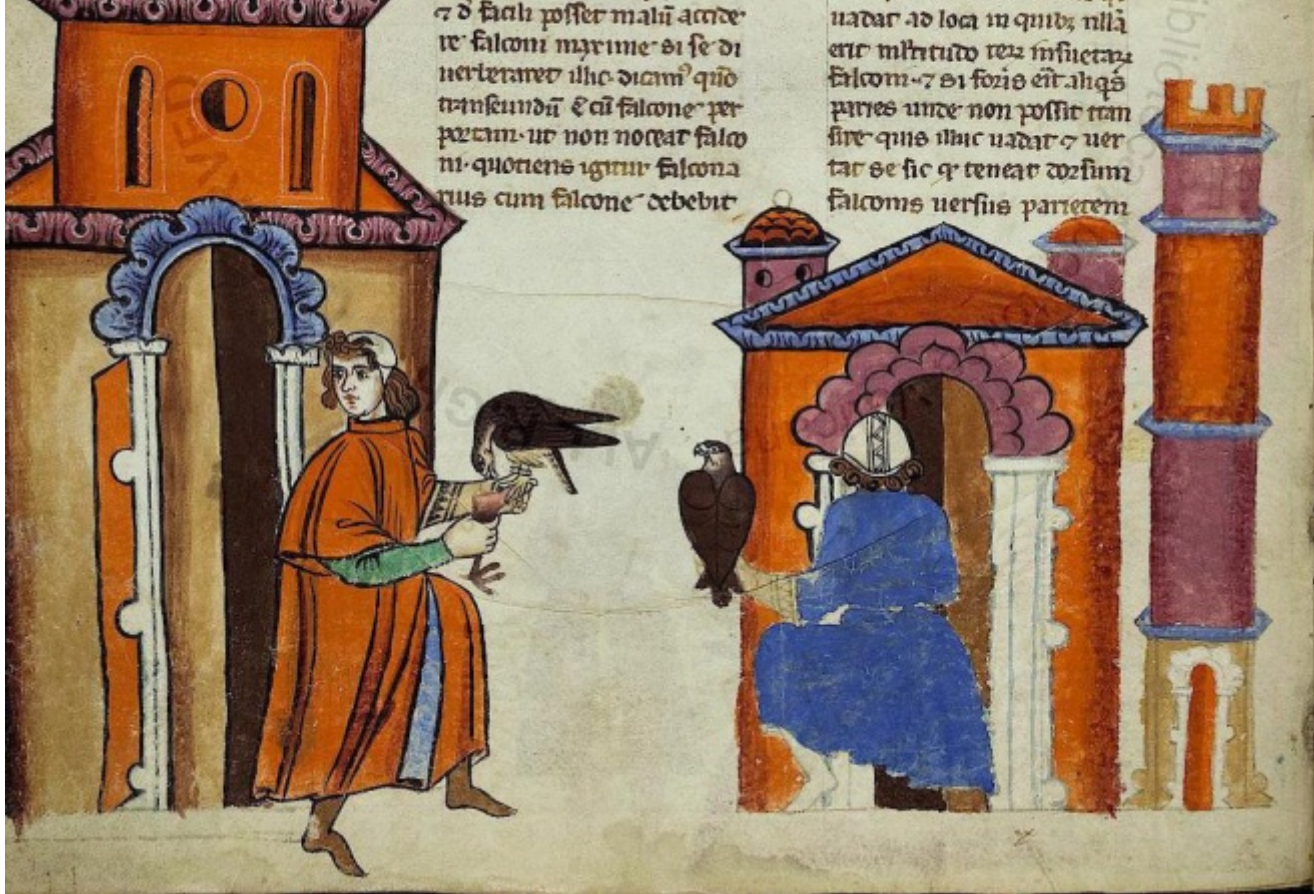 ⁊ d̄ facili posset malū accide
re falconi maxime si se di
uerberaret illic. dicam᷒ quō
transeundū ē cū falcone per
portam. ut non noceat falco
ni. quotiens igitur falcona
rius cum falcone debebit
uadat ad loca in quibꝫ nllā
erit mltitudo reꝝ insuetaꝝ
falconi. ⁊ si foris eīt aliqs̄
paries unde non possit tran
sire quis illuc uadat ⁊ uer
tat se sic ꝙ teneat dorsum
falconis uersus parietem